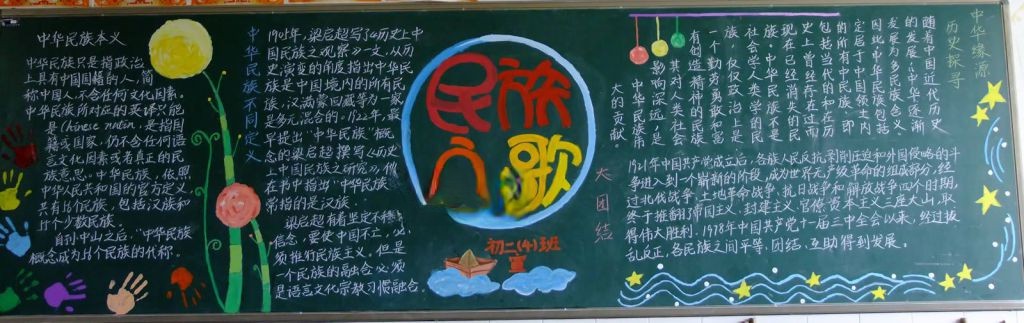 中华民族本义
中华民族只是指政治
上具有中国国籍的人,简
称中国人,不含任何文化因素。
中华民族所对应的英译只能
是Chinese nation,是指国
籍或国家,仍不含任何语
言文化因素或者真正的民
族意思。中华民族,依照
中华人民共和国的官方定义,
共有56个民族,包括汉族和
55个少数民族。
自孙中山之后,“中华民族”
概念成为56个民族的代称。
中华民族不同定义
1905年,梁启超写了《历史上中
国民族之观察》一文,从历
史演变的角度指出中华民
族是中国境内的所有民
族,汉满蒙回藏等为一家,
是多元混合的。1922年,最
早提出“中华民族”概
念的梁启超撰写《历史
上中国民族之研究》,他
在书中指出“中华民族”
常指的是汉族。
梁启超有着坚定不移
信念,要使中国不亡,必
须推行民族主义。但是
一个民族的融合,必须
是语言文化宗教习惯融合。
民族
之歌
初二(4)班
宣
大团结
中华缘源
历史探寻
随着中国近代历史
的发展,中华逐渐
发展为多民族含义,
因此中华民族包括
定居于中国领土内
的所有民族,即
包括当代的和在历
史上曾经存在过而
现在已经消失的民
族。中华民族不是
社会学人类学的民
族,仅仅政治上是
一个勤劳勇敢和富
有创造精神的民族,
其对人类社会
影响深远,是
中华民族带
大的贡献。
1921年中国共产党成立后,各族人民反抗剥削压迫和外国侵略的斗
争进入到一个崭新的阶段,成为世界无产级革命的组成部分,经
过北伐战争、土地革命战争、抗日战争和解放战争四个时期,
终于推翻了帝国主义、封建主义、官僚资本主义三座大山,取
得伟大胜利。1978年中国共产党十一届三中全会以来,经过拔
乱反正,各民族之间平等、团结、互助得到发展。